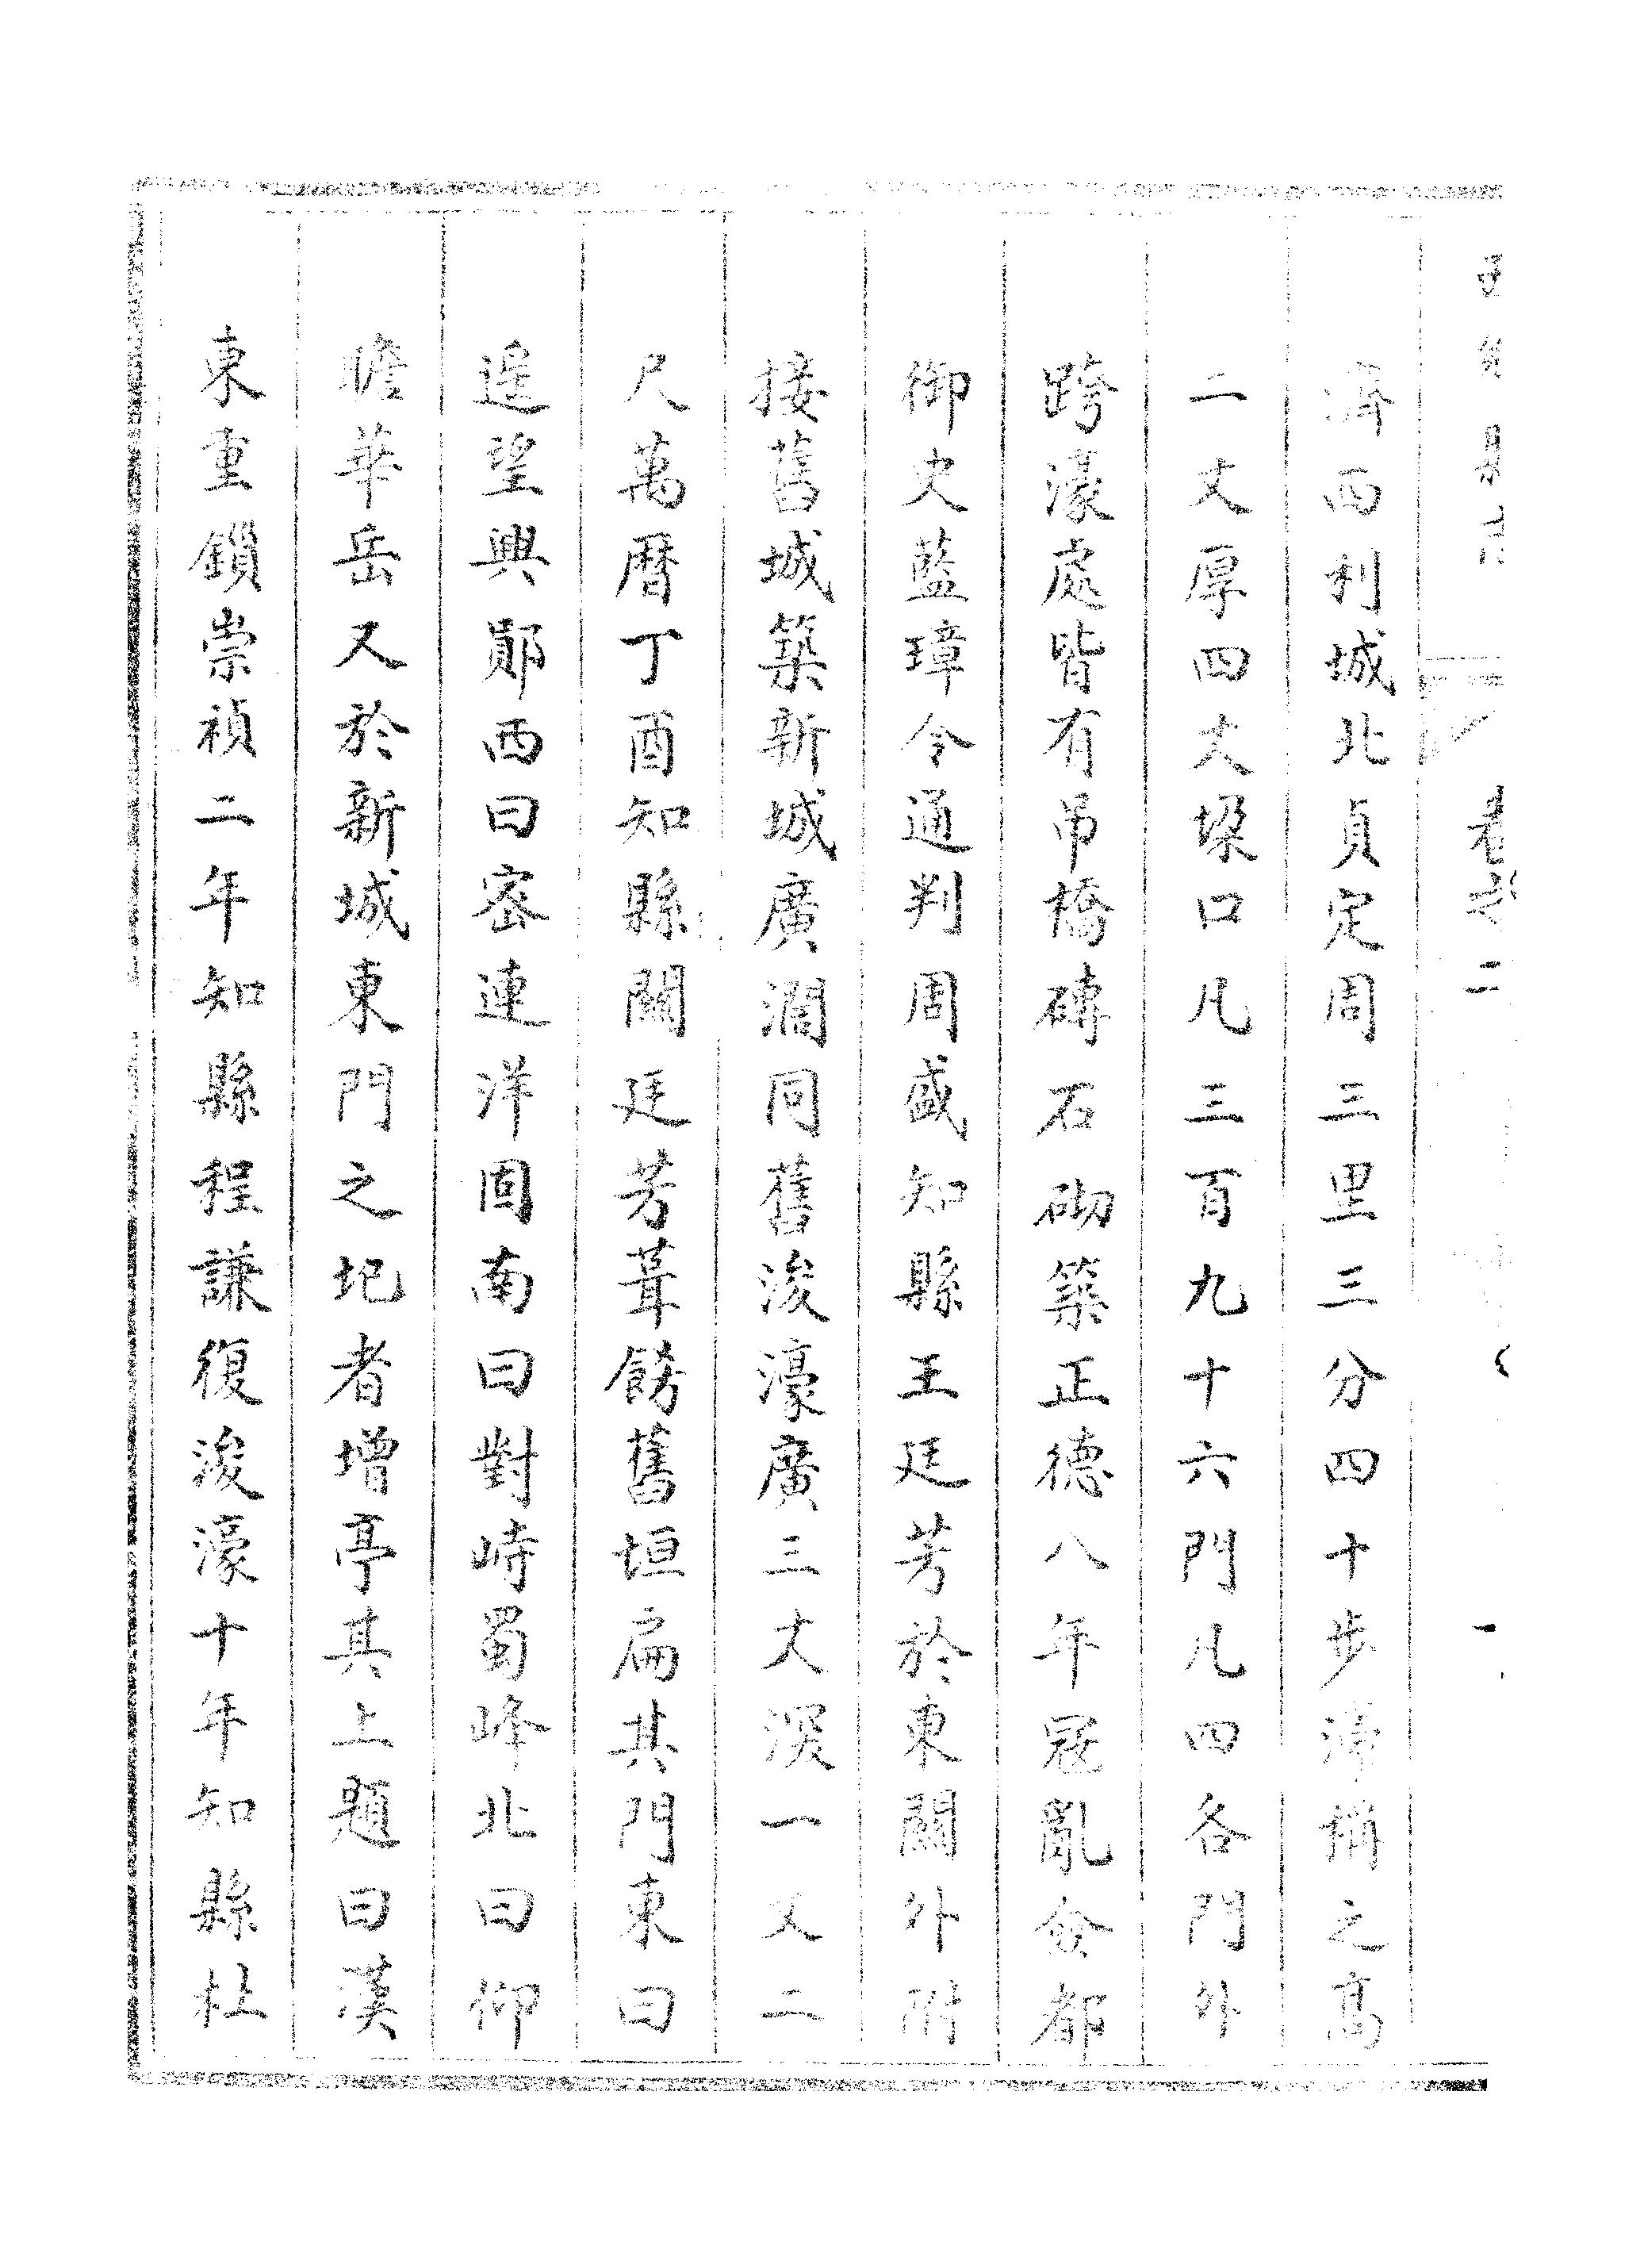 卷之二
濟西利城北貞定周三里三分四十步濠稱之高
二丈厚四丈垜口凡三百九十六門凡四各門外
跨濠處皆有吊橋磚石砌築正德八年寇亂僉都
御史藍璋令通判周盛知縣王廷芳於東關外附
接舊城築新城廣濶同舊浚濠廣三丈深一丈二
尺萬曆丁酉知縣關廷芳葺餝舊垣扁其門東曰
遥望興鄖西曰密連洋固南曰對峙蜀峰北曰仰
瞻華岳又於新城東門之圮者增亭其上題曰漢
東重鎖崇禎二年知縣程謙復浚濠十年知縣杜